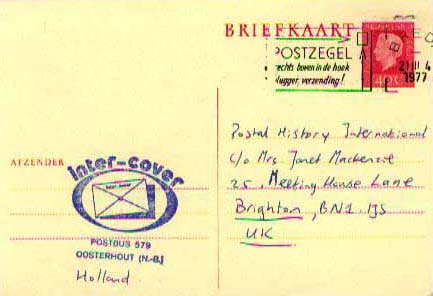 BRIEFKAART
POSTZEGEL
rechts boven in de hoek
vlugger verzending!
1977
40
Postal History International
c/o Mrs. Janet Mackenzie
25, Meeting House Lane
Brighton, BN1 1JS
UK
AFZENDER
inter-cover
POSTBUS 579
OOSTERHOUT (N.-B.)
Holland